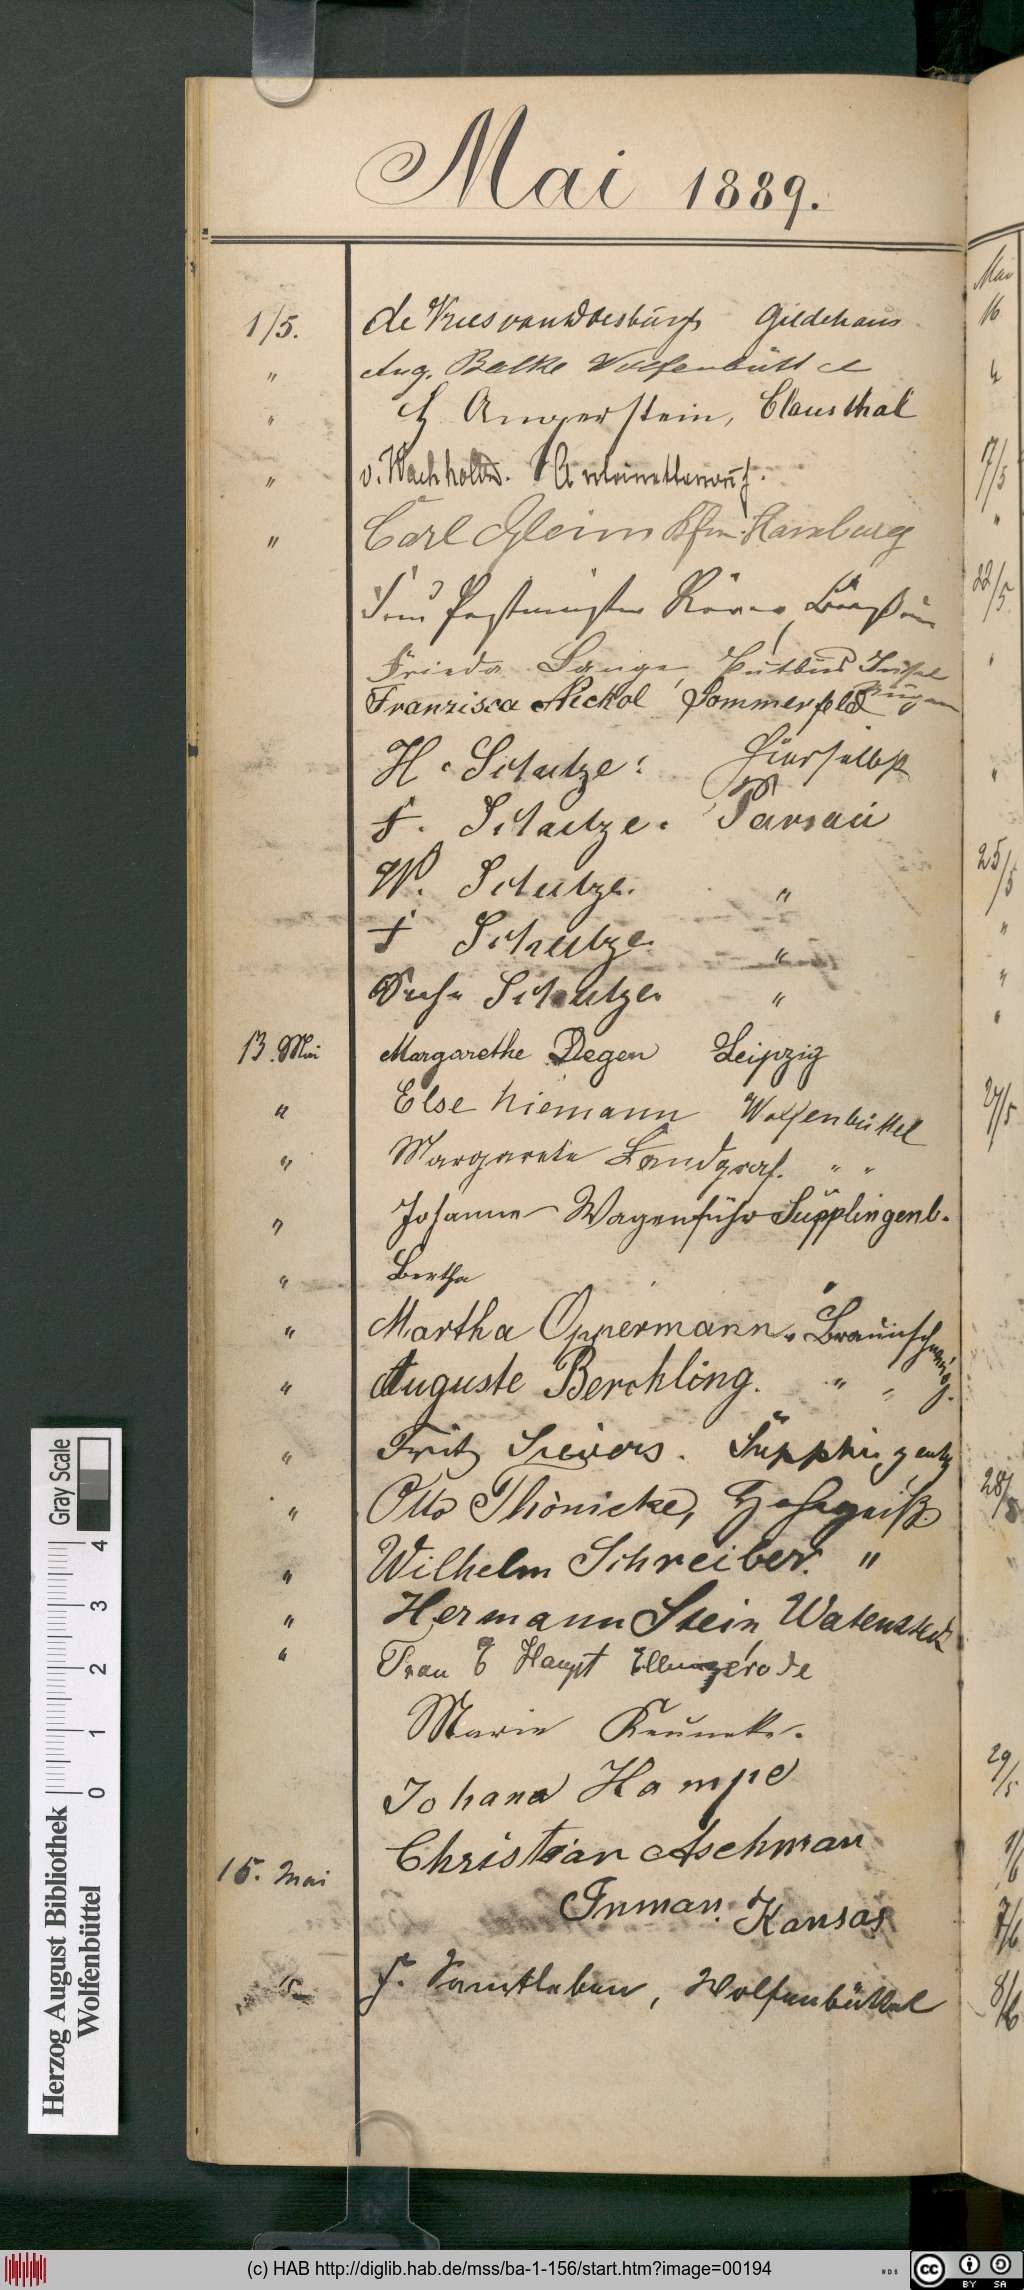 Mai 1889.
1/5. de Vries van Doesburgh Gildehaus
" Aug. Balke Wolfenbüttel
" Angerstein, Clausthal
" v. Wachholtz.
" Carl Gleim Kfm. Hamburg
Frau Postmeister Börßum
Frieda Lange, Putbus Insel Rügen
Franzisca Nickol, Sommerfeld
H. Schulze. hierselbst
F. Schulze. Parsau
W. Schulze. "
F Schulze. "
Schulze. "
13. Mai Margarethe Degen Leipzig
" Else Niemann Wolfenbüttel
" Margarete Landgraf. " "
" Johanne Wagenführ Süpplingenb.
" Bertha "
" Martha Oppermann. Braunschweig.
" Auguste Berckling. " "
" Fritz Sievers.
" Otto Thönicke, Hohegeiß.
" Wilhelm Schreiber. "
" Hermann Stein Watenstedt
" Frau E Haupt Ellingerode
Marie Keuneke.
Johana Hampe
15. Mai Christian Aschman
Inman. Kansas
" F. Vamtleben, Wolfenbüttel
Mai
16
"
17/5
"
22/5
"
"
25/5
"
"
"
27/5
28/5
29/5
1/6
7/6
8/6
Herzog August Bibliothek
Wolfenbüttel
0 1 2 3 4
Gray Scale
(c) HAB http://diglib.hab.de/mss/ba-1-156/start.htm?image=00194
WDB
cc
BY SA